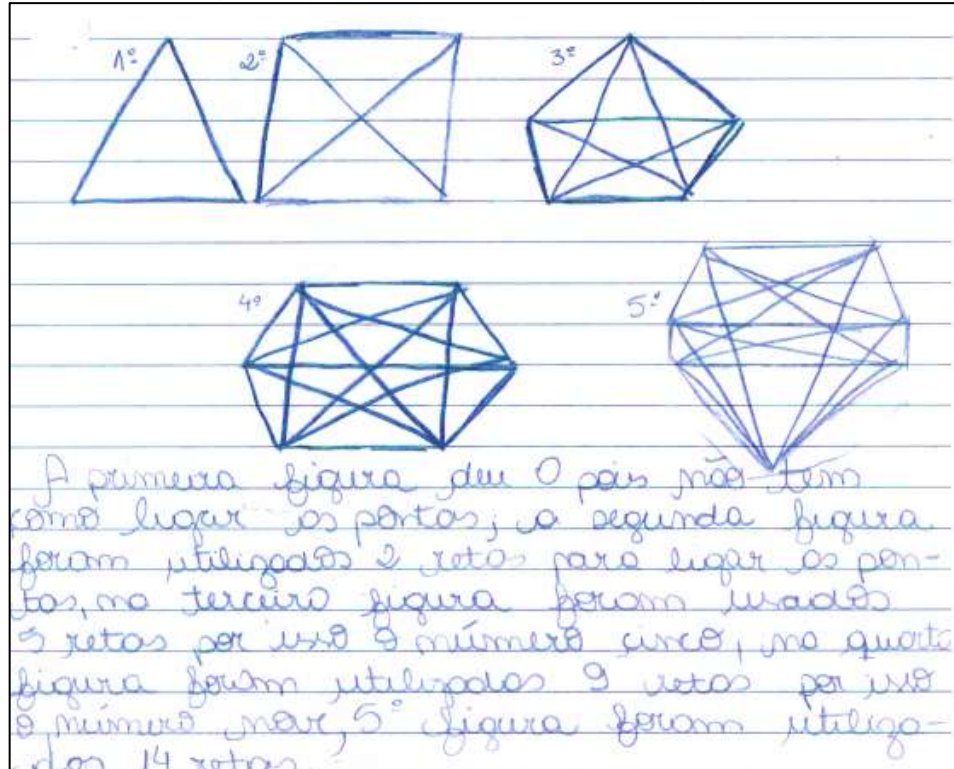 1º 2º 3º
4º 5º
A primeira figura deu 0 pois não tem
como ligar os pontos; a segunda figura
foram utilizados 2 retas para ligar os pon-
tos, na terceira figura foram usados
5 retas por isso o número cinco, na quarta
figura foram utilizados 9 retas por isso
o número nove, 5º figura foram utiliza-
dos 14 retas.